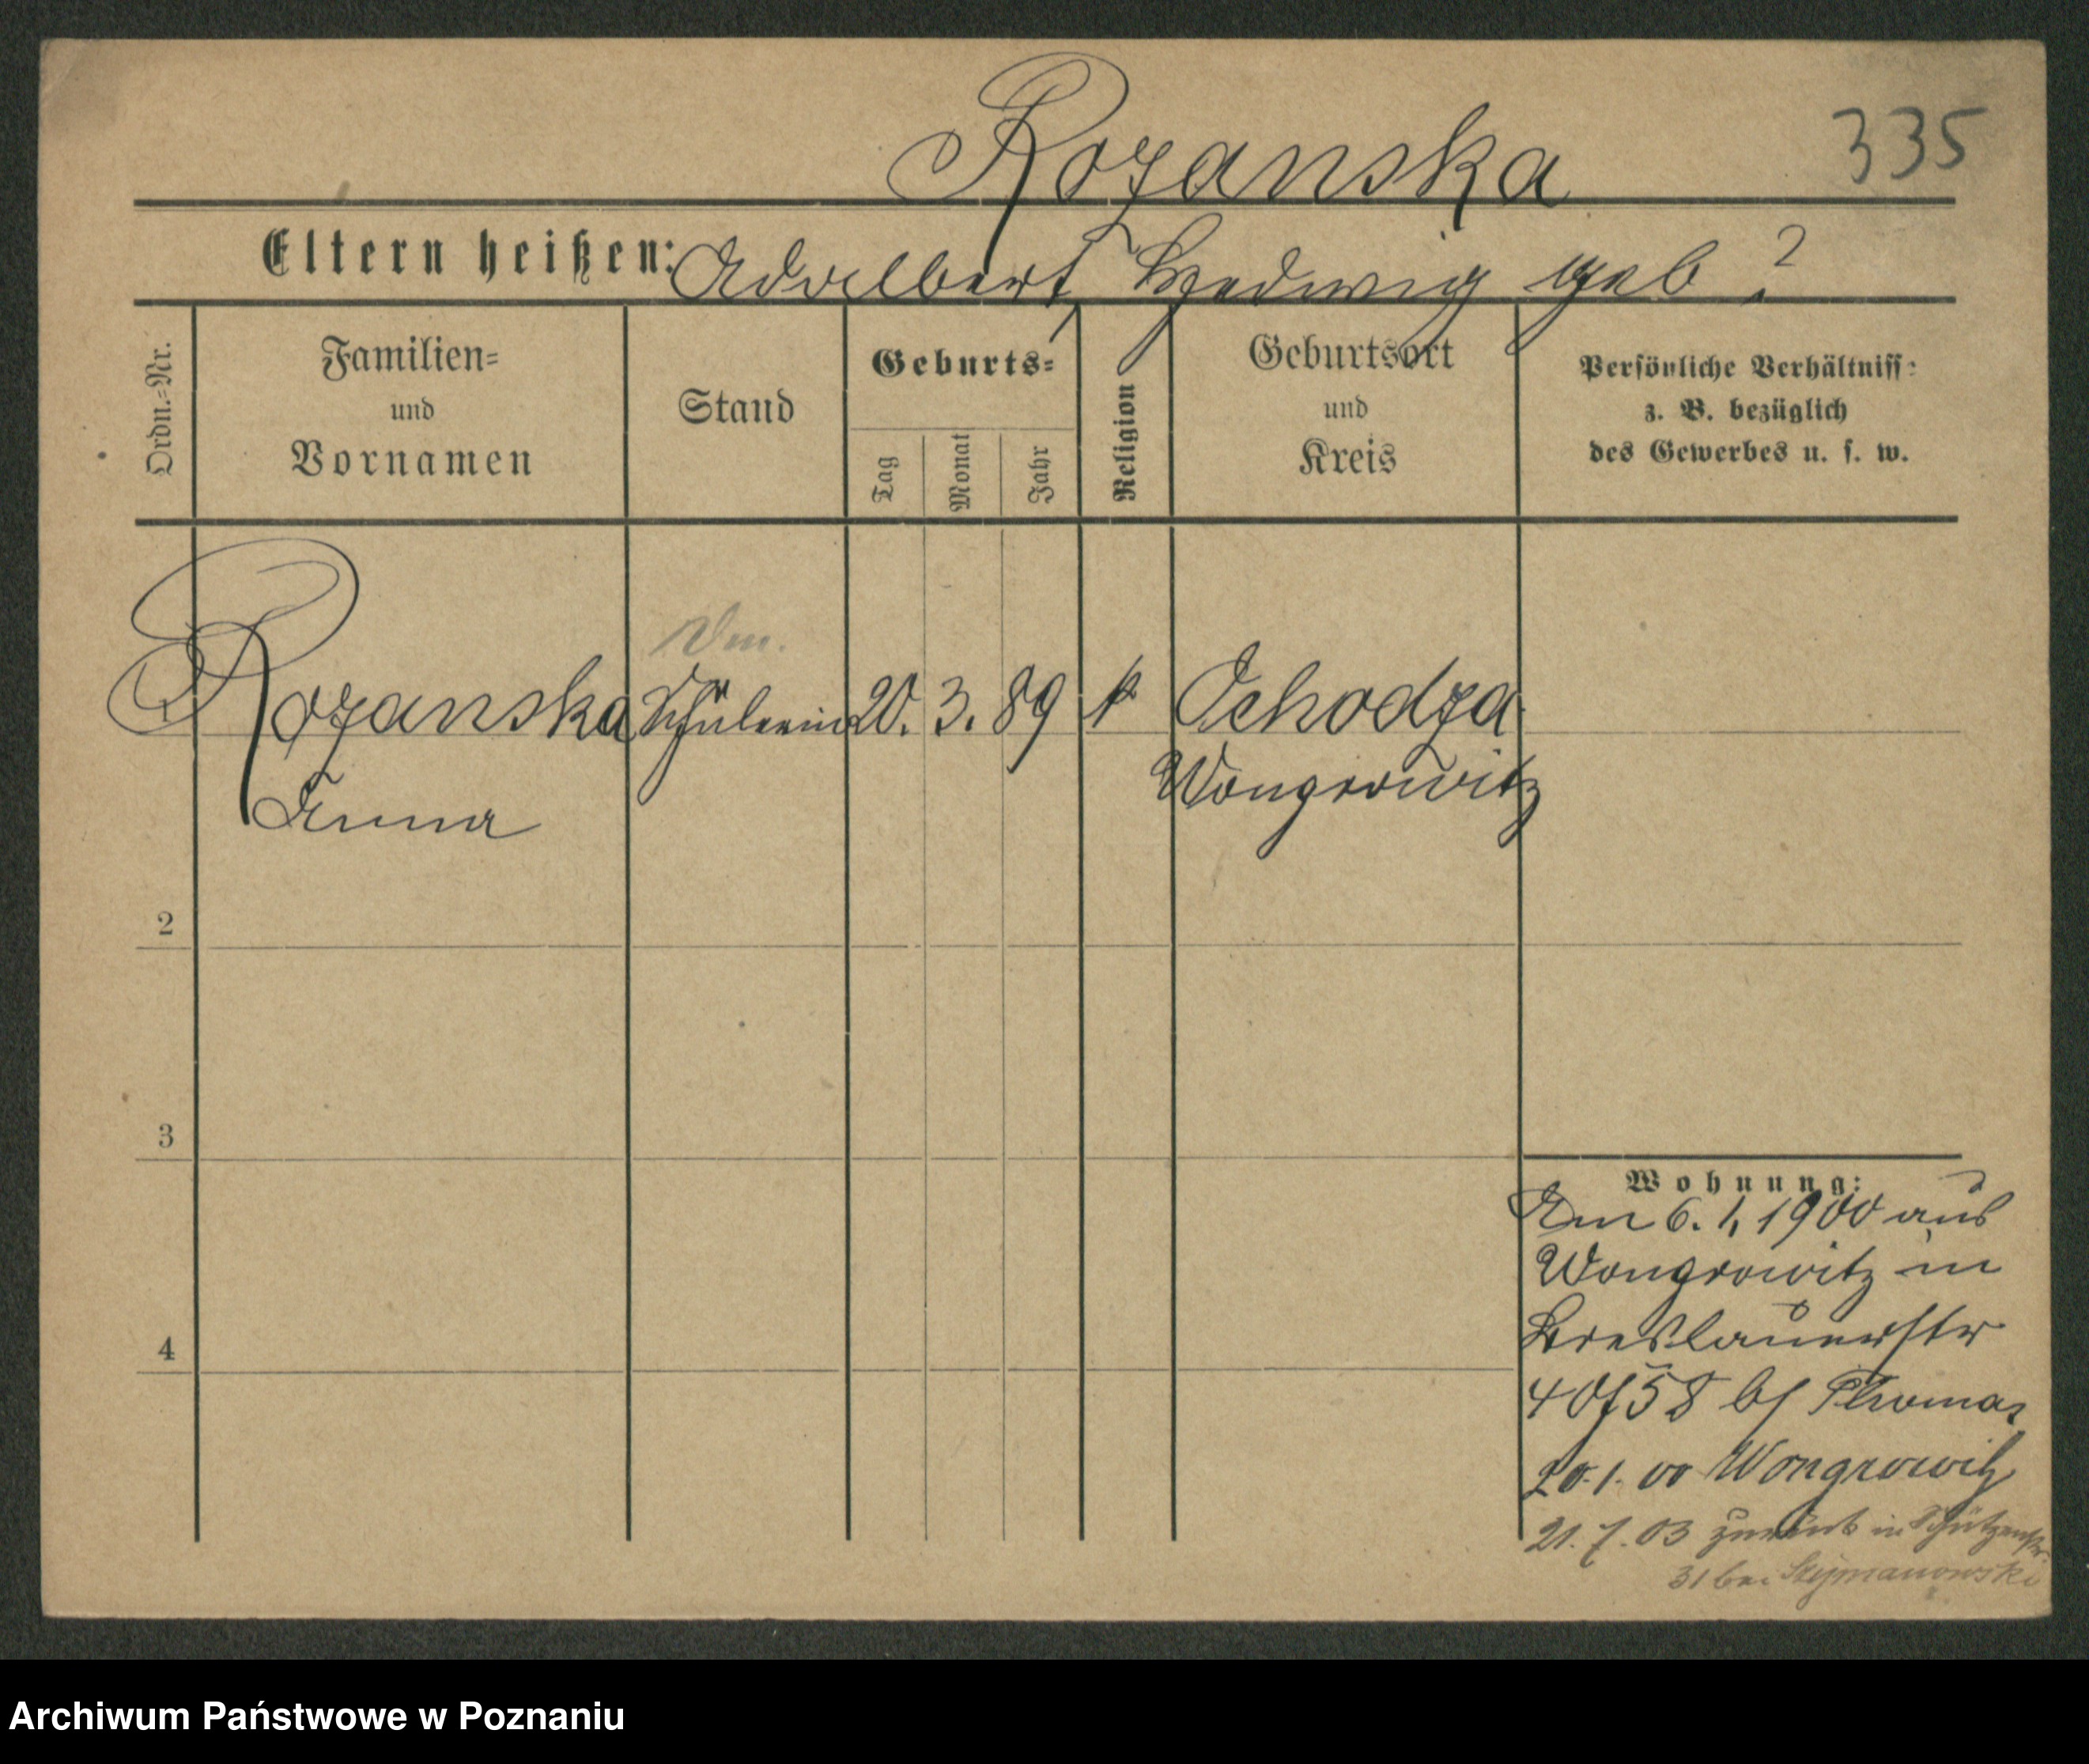 Rozanska
335
Eltern heißen: Adalbert Hedwig geb ?
Ordn.-Nr.
Familien-
und
Vornamen
Stand
Geburts-
Tag
Monat
Jahr
Religion
Geburtsort
und
Kreis
Persönliche Verhältniss-
z. B. bezüglich
des Gewerbes u. s. w.
1 Rozanska Schülerin 20. 3. 89 k Ochodza
Anna Wongrowitz
2
3
4
Wohnung:
Am 6. 1, 1900 aus
Wongrowitz in
Breslauerstr
40/58 bei Thomas
20. 1. 00 Wongrowitz
21. 7. 03 zurück in Schützenstr.
31 bei Szymanowski
Archiwum Państwowe w Poznaniu